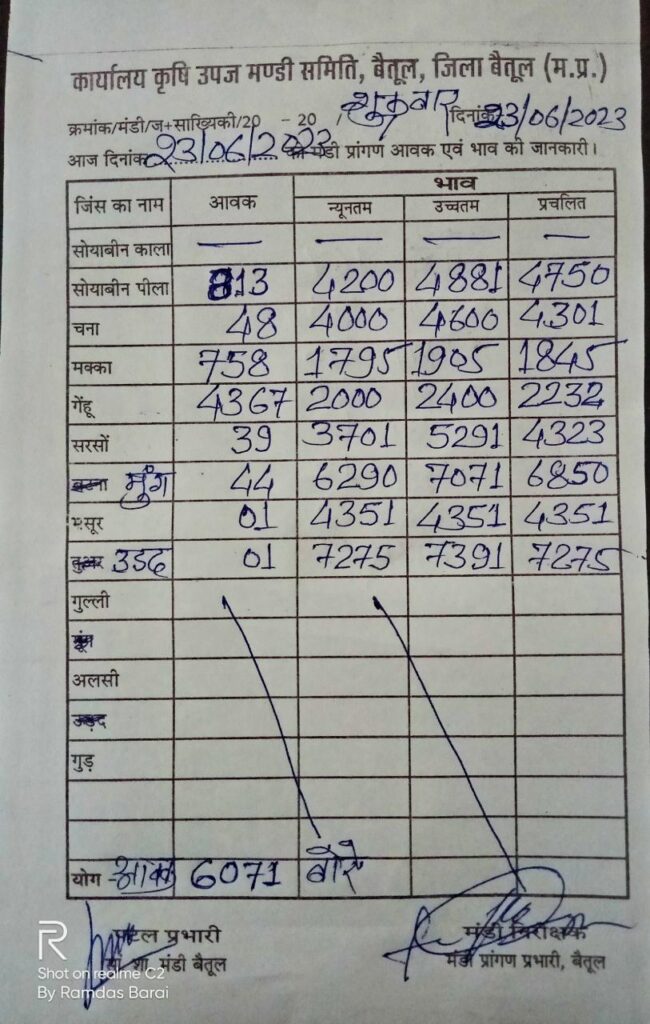 कार्यालय कृषि उपज मण्डी समिति, बैतूल, जिला बैतूल (म.प्र.)
क्रमांक/मंडी/ज+साख्यिकी/20 - 20 / शुक्रवार दिनांक 23/06/2023
आज दिनांक 23/06/2023 को मंडी प्रांगण आवक एवं भाव की जानकारी।
जिंस का नाम आवक भाव
न्यूनतम उच्चतम प्रचलित
सोयाबीन काला — — — —
सोयाबीन पीला 813 4200 4881 4750
चना 48 4000 4600 4301
मक्का 758 1795 1905 1845
गेंहू 4367 2000 2400 2232
सरसों 39 3701 5291 4323
मुंग 44 6290 7071 6850
मसूर 01 4351 4351 4351
तुअर उडद 01 7275 7391 7275
गुल्ली
मूंग
अलसी
उड़द
गुड़
योग आवक 6071 बोरे
प्रभारी मंडी निरीक्षक
शा. मंडी बैतूल मंडी प्रांगण प्रभारी, बैतूल
R
Shot on realme C2
By Ramdas Barai